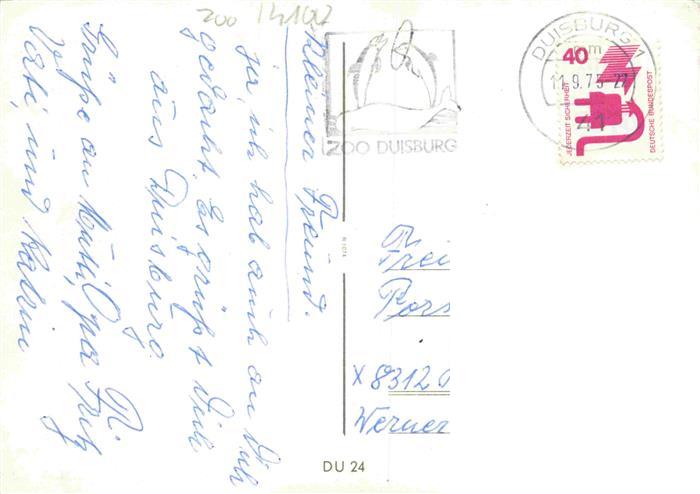 zoo 14102
Kleiner Freund.
ja, ich hab auch an Dich
gedacht. Es grüßt Dich
aus Duisburg.
Grüße an Mutti, Opa Fritz
Vati, und Katrin
ZOO DUISBURG
DUISBURG 1
11.9.75-21
41
40
JEDERZEIT SICHERHEIT
DEUTSCHE BUNDESPOST
X 8312
Werner
DU 24